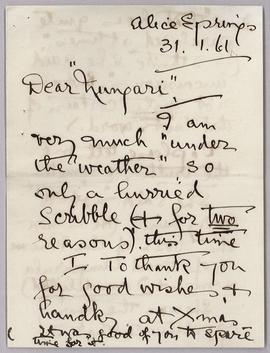 Alice Springs
31.1.61
Dear "Nungari",
I am
very much "under
the "weather" so
only a hurried
Scribble (+ for two
reasons), this time
I To thank you
for good wishes +
handks at Xmas
(It was good of you to spare
time for it.